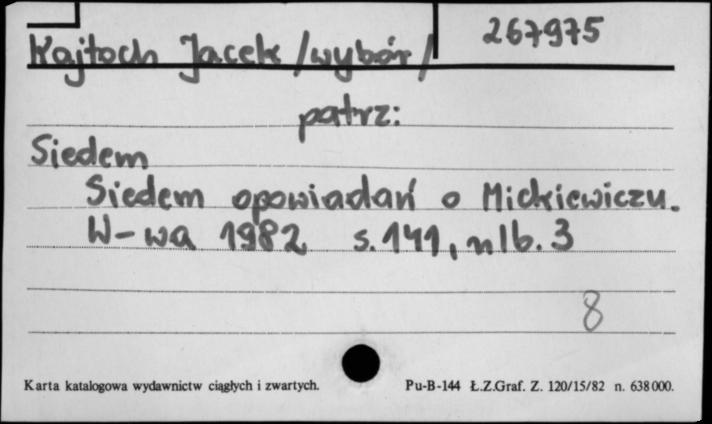 267975
Kajtoch Jacek /wybór/
patrz:
Siedem
Siedem opowiadań o Mickiewiczu.
W-wa 1982 s. 141, nlb. 3
8
Karta katalogowa wydawnictw ciągłych i zwartych. Pu-B-144 Ł.Z.Graf. Z. 120/15/82 n. 638000.